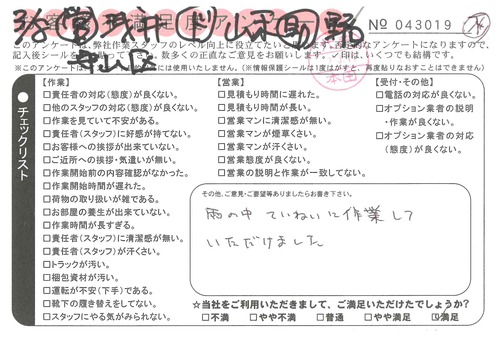 No 043019
このアンケートは、弊社作業スタッフのレベル向上に役立てたいと
記入後シールを
【作業】
□責任者の対応(態度)が良くない。
□他のスタッフの対応(態度)が良くない。
□作業を見ていて不安がある。
□責任者(スタッフ)に好感が持てない。
□お客様への挨拶が出来ていない。
□ご近所への挨拶・気遣いが無い。
□作業開始前の内容確認がなかった。
□作業開始時間が遅れた。
□荷物の取り扱いが雑である。
□お部屋の養生が出来ていない。
□作業時間が長すぎる。
□責任者(スタッフ)に清潔感が無い。
□責任者(スタッフ)が汗くさい。
□トラックが汚い。
□梱包資材が汚い。
□運転が不安(下手)である。
□靴下の履き替えをしてない。
□スタッフにやる気がみられない。
【営業】
□見積もり時間に遅れた。
□見積もり時間が長い。
□営業マンに清潔感が無い。
□営業マンが煙草くさい。
□営業マンが汗くさい。
□営業態度が良くない。
□営業の説明と作業が一致してない。
【受付・その他】
□電話の対応が良くない。
□オプション業者の説明
・作業が良くない。
□オプション業者の対応
(態度)が良くない。
●チェックリスト
その他、ご意見・ご要望等ありましたらお書き下さい。
雨の中 ていねいに作業して
いただけました
☆当社をご利用いただきまして、ご満足いただけたでしょうか?
□不満 □やや不満 □普通 □やや満足 ☑満足